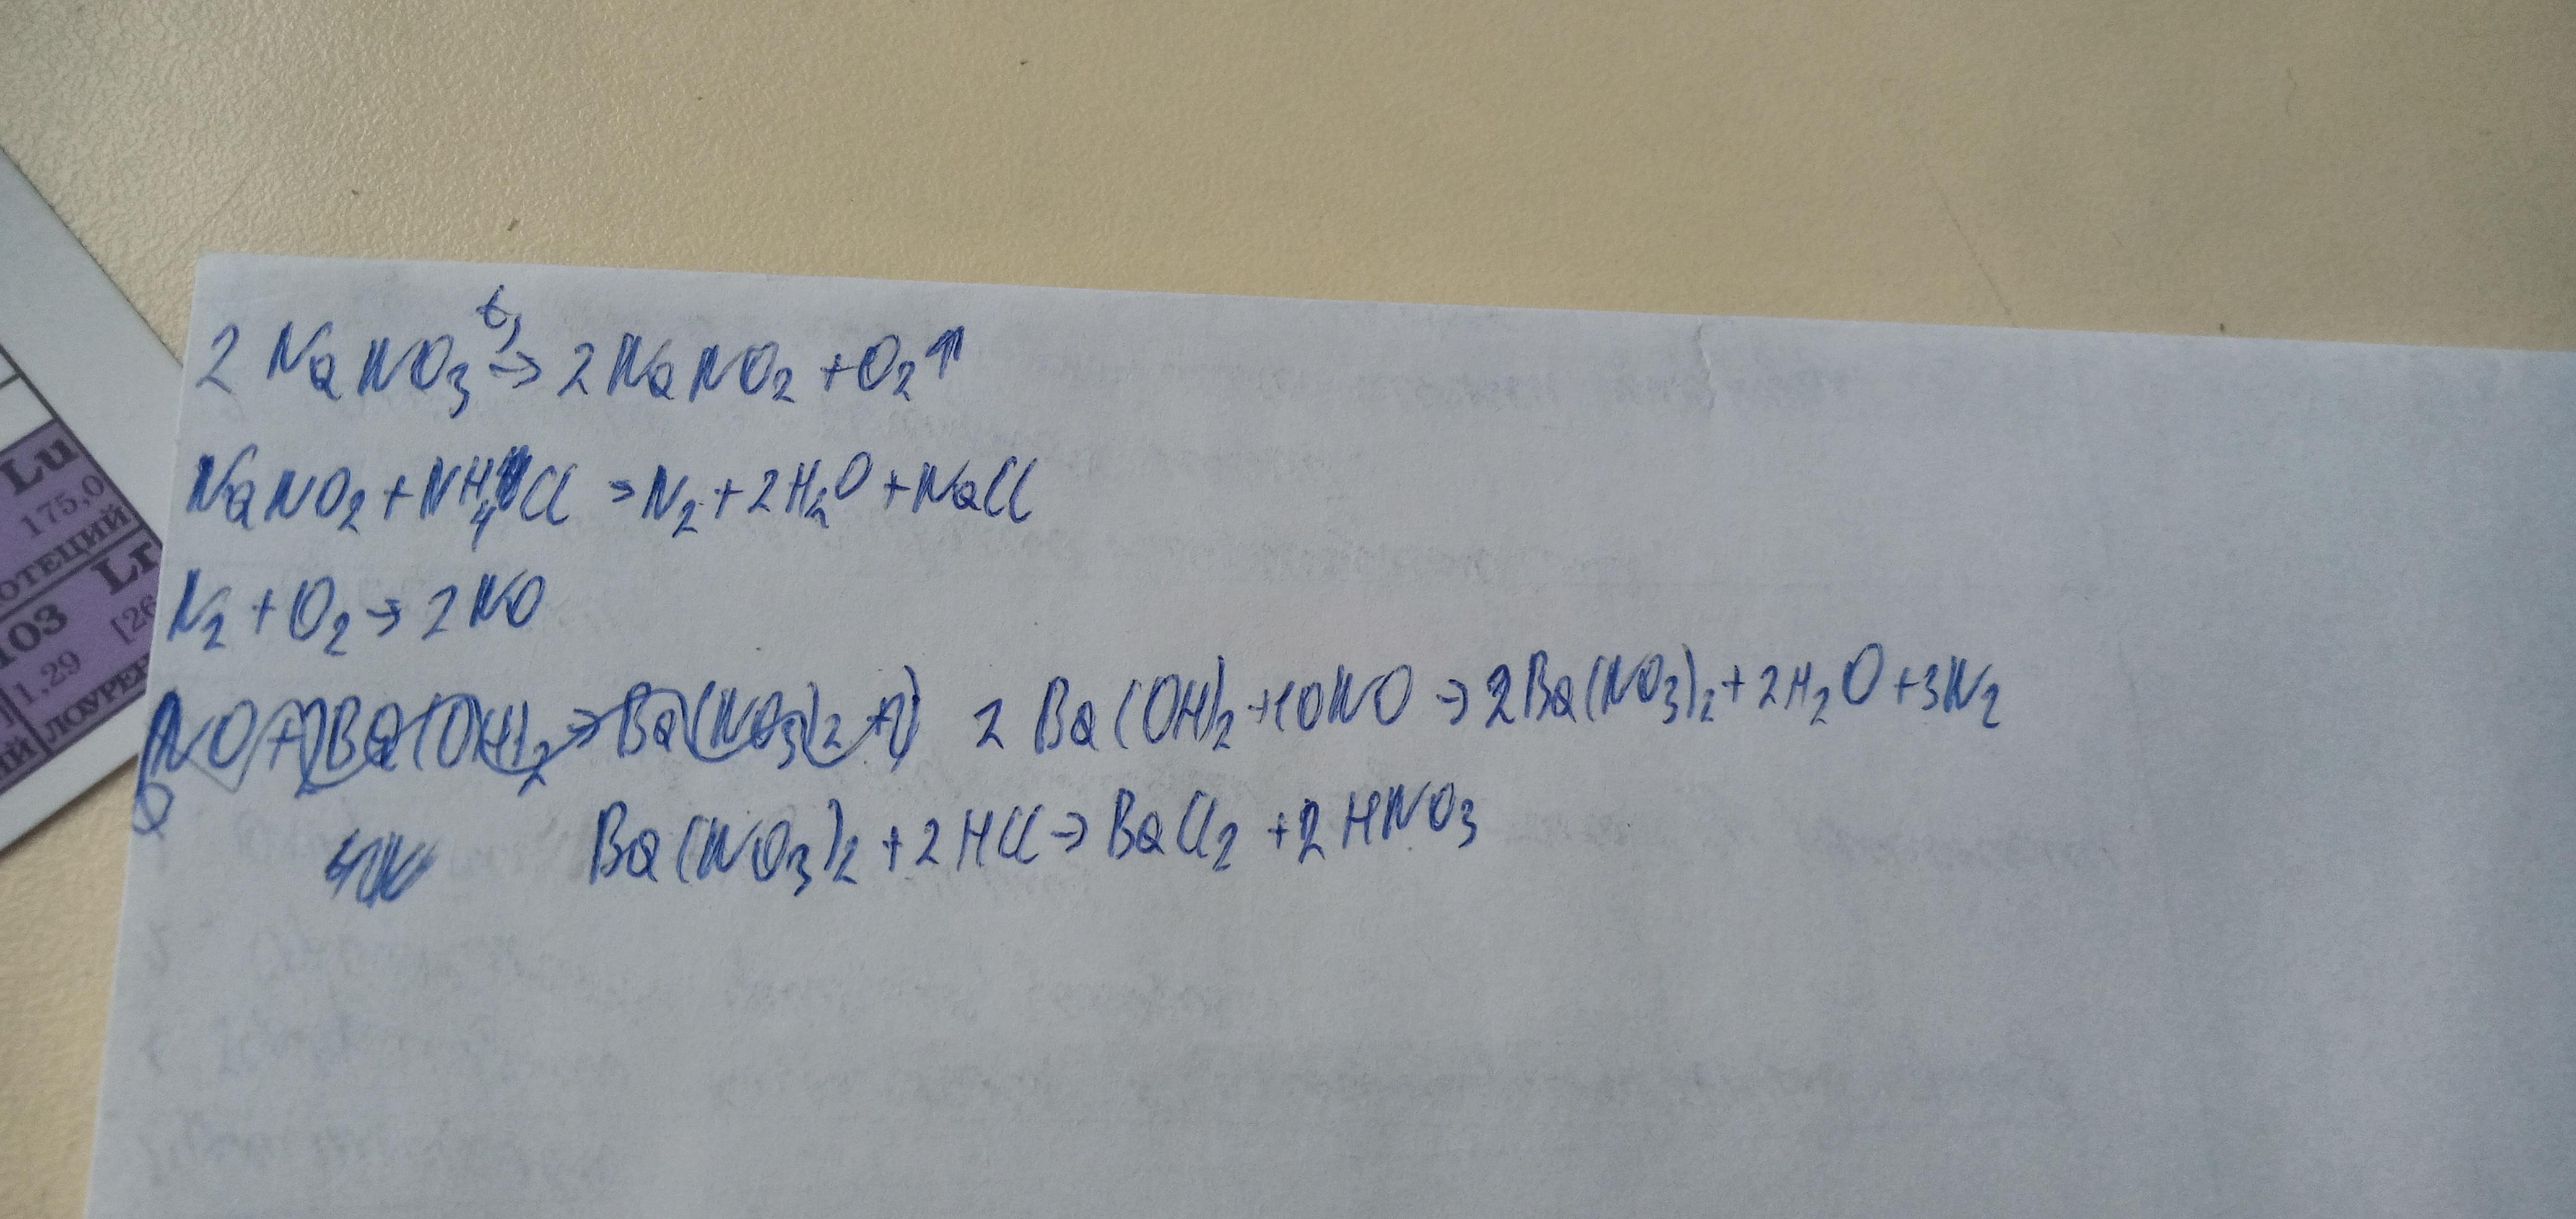 Lu
175,0
ОТЕЦИЙ
103 Lr
[26
1,29
ЛОУРЕН
ИЙ
2 NaNO3 t, → 2NaNO2 + O2↑
NaNO2 + NH4Cl → N2 + 2H2O + NaCl
N2 + O2 → 2NO
2 Ba(OH)2 + 10NO → 2Ba(NO3)2 + 2H2O + 3N2
Ba(NO3)2 + 2HCl → BaCl2 + 2HNO3